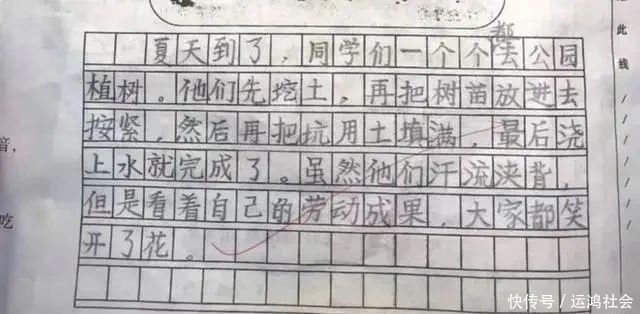 都
夏天到了，同学们一个个去公园
植树。他们先挖土，再把树苗放进去
按紧，然后再把坑用土填满，最后浇
上水就完成了。虽然他们汗流浃背，
但是看着自己的劳动成果，大家都笑
开了花。
此
线
音，
吃
快传号/运鸿社会